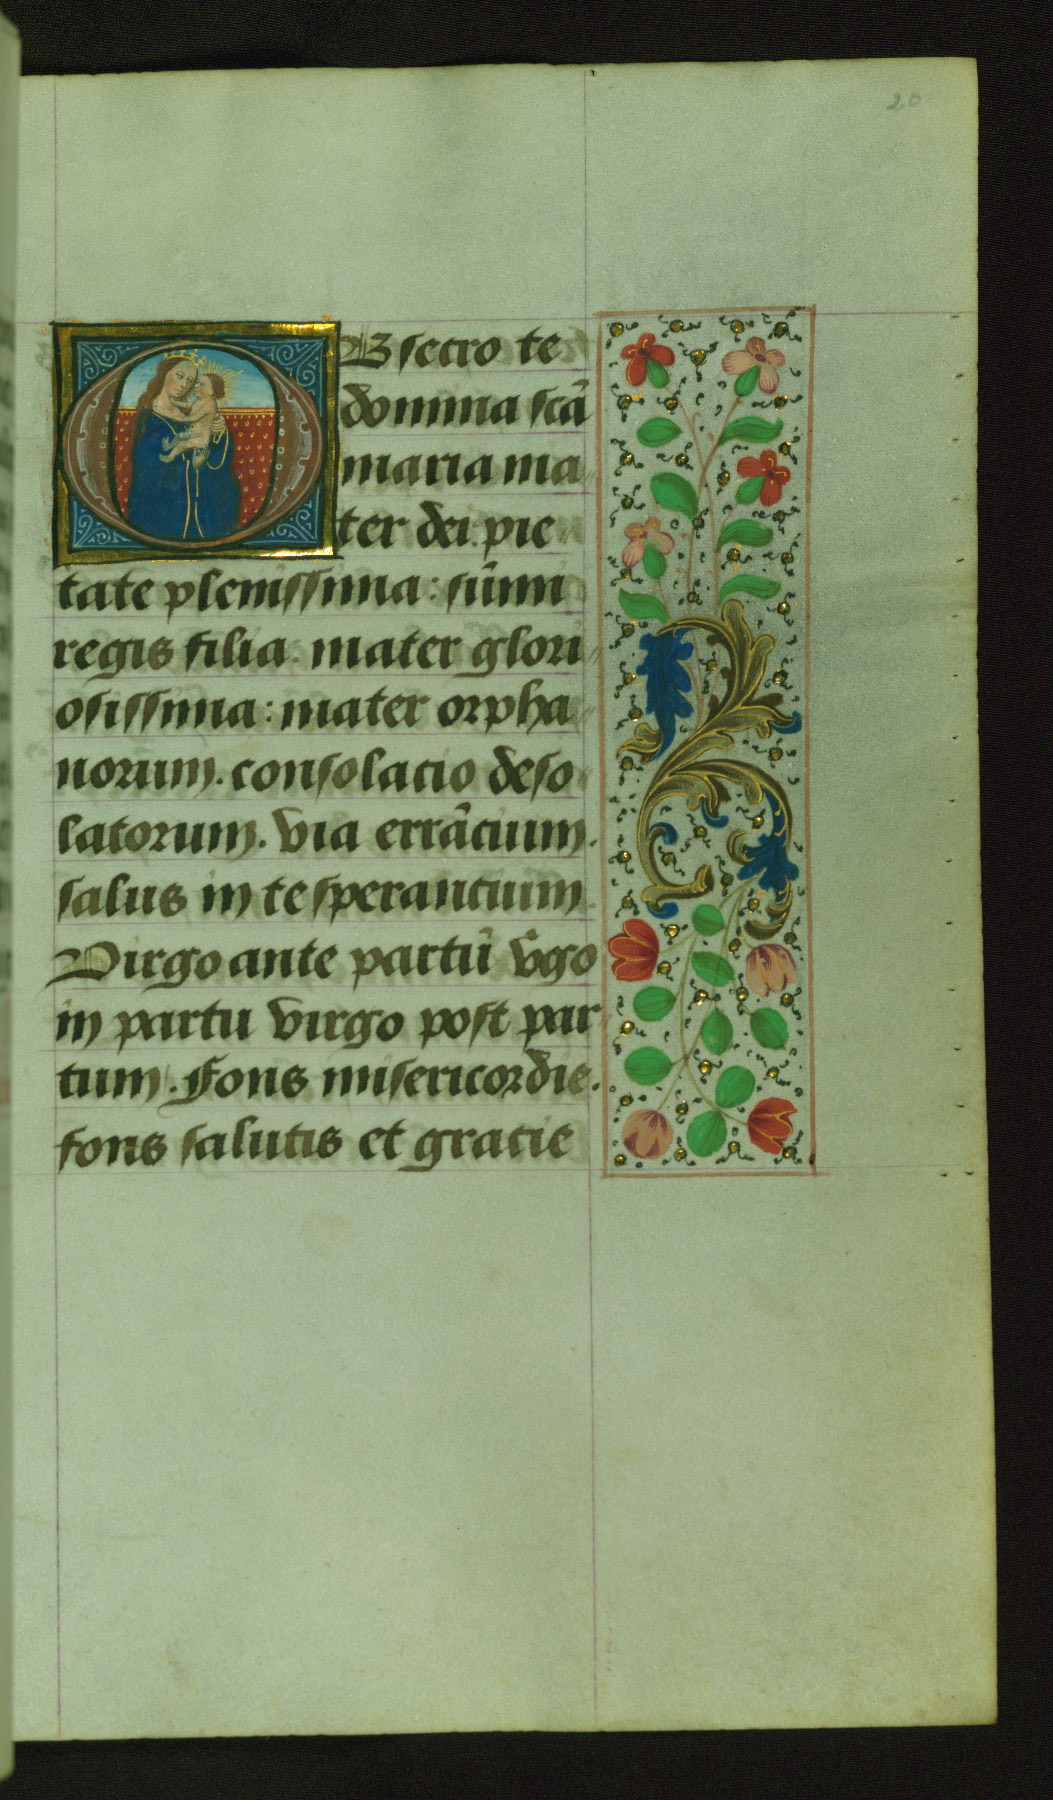 20
OBsecro te
domina scā
maria ma
ter dei. pie
tate plenissima: sūmi
regis filia. mater glori
osissima: mater orpha
norum. consolacio deso
latorum. via errācium.
salus in te sperancium.
Virgo ante partū v̄go
in partu virgo post par
tum. Fons misericordie.
fons salutis et gracie